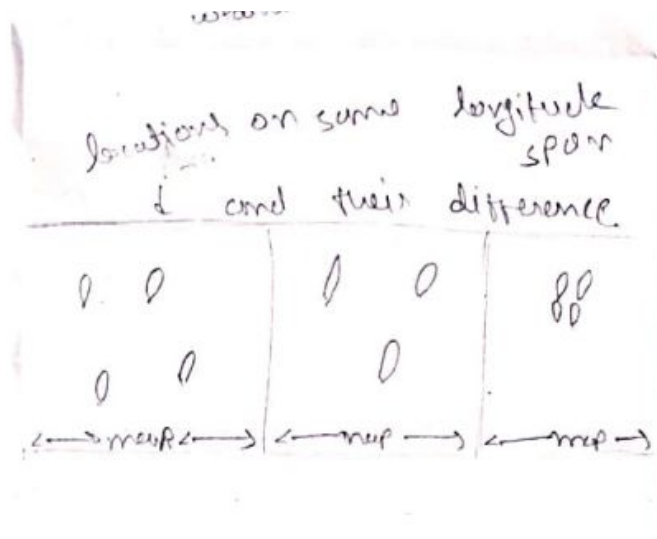 locations on same longitude
span
& and their difference
map map map